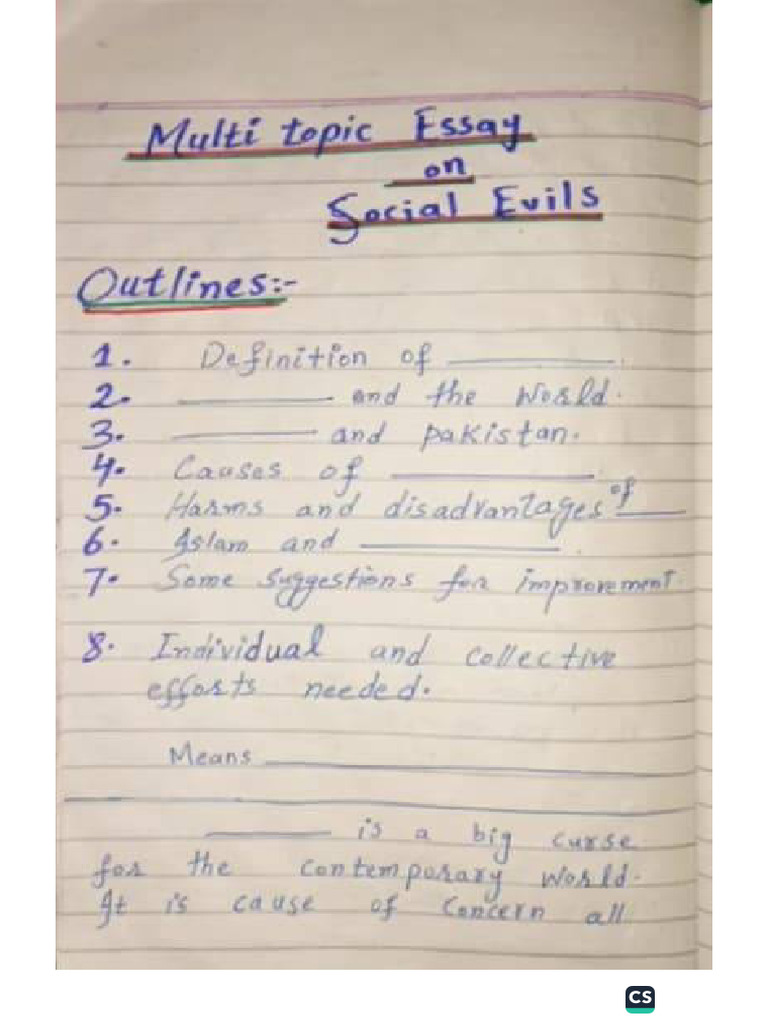 Multi topic Essay
on
Social Evils
Outlines:-
1. Definition of ________.
2. ________ and the World.
3. ________ and pakistan.
4. Causes of ________.
5. Harms and disadvantages of ____
6. Islam and ________.
7. Some suggestions for improvement.
8. Individual and collective
efforts needed.
Means ________
________ is a big curse
for the contemporary world.
It is cause of concern all
CS